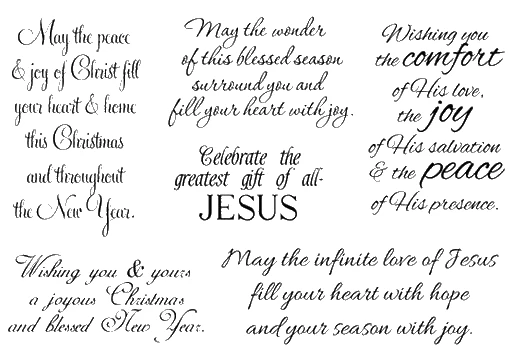 May the peace
& joy of Christ fill
your heart & home
this Christmas
and throughout
the New Year.
May the wonder
of this blessed season
surround you and
fill your heart with joy.
Celebrate the
greatest gift of all-
JESUS
Wishing you
the comfort
of His love,
the joy
of His salvation
& the peace
of His presence.
Wishing you & yours
a joyous Christmas
and blessed New Year.
May the infinite love of Jesus
fill your heart with hope
and your season with joy.